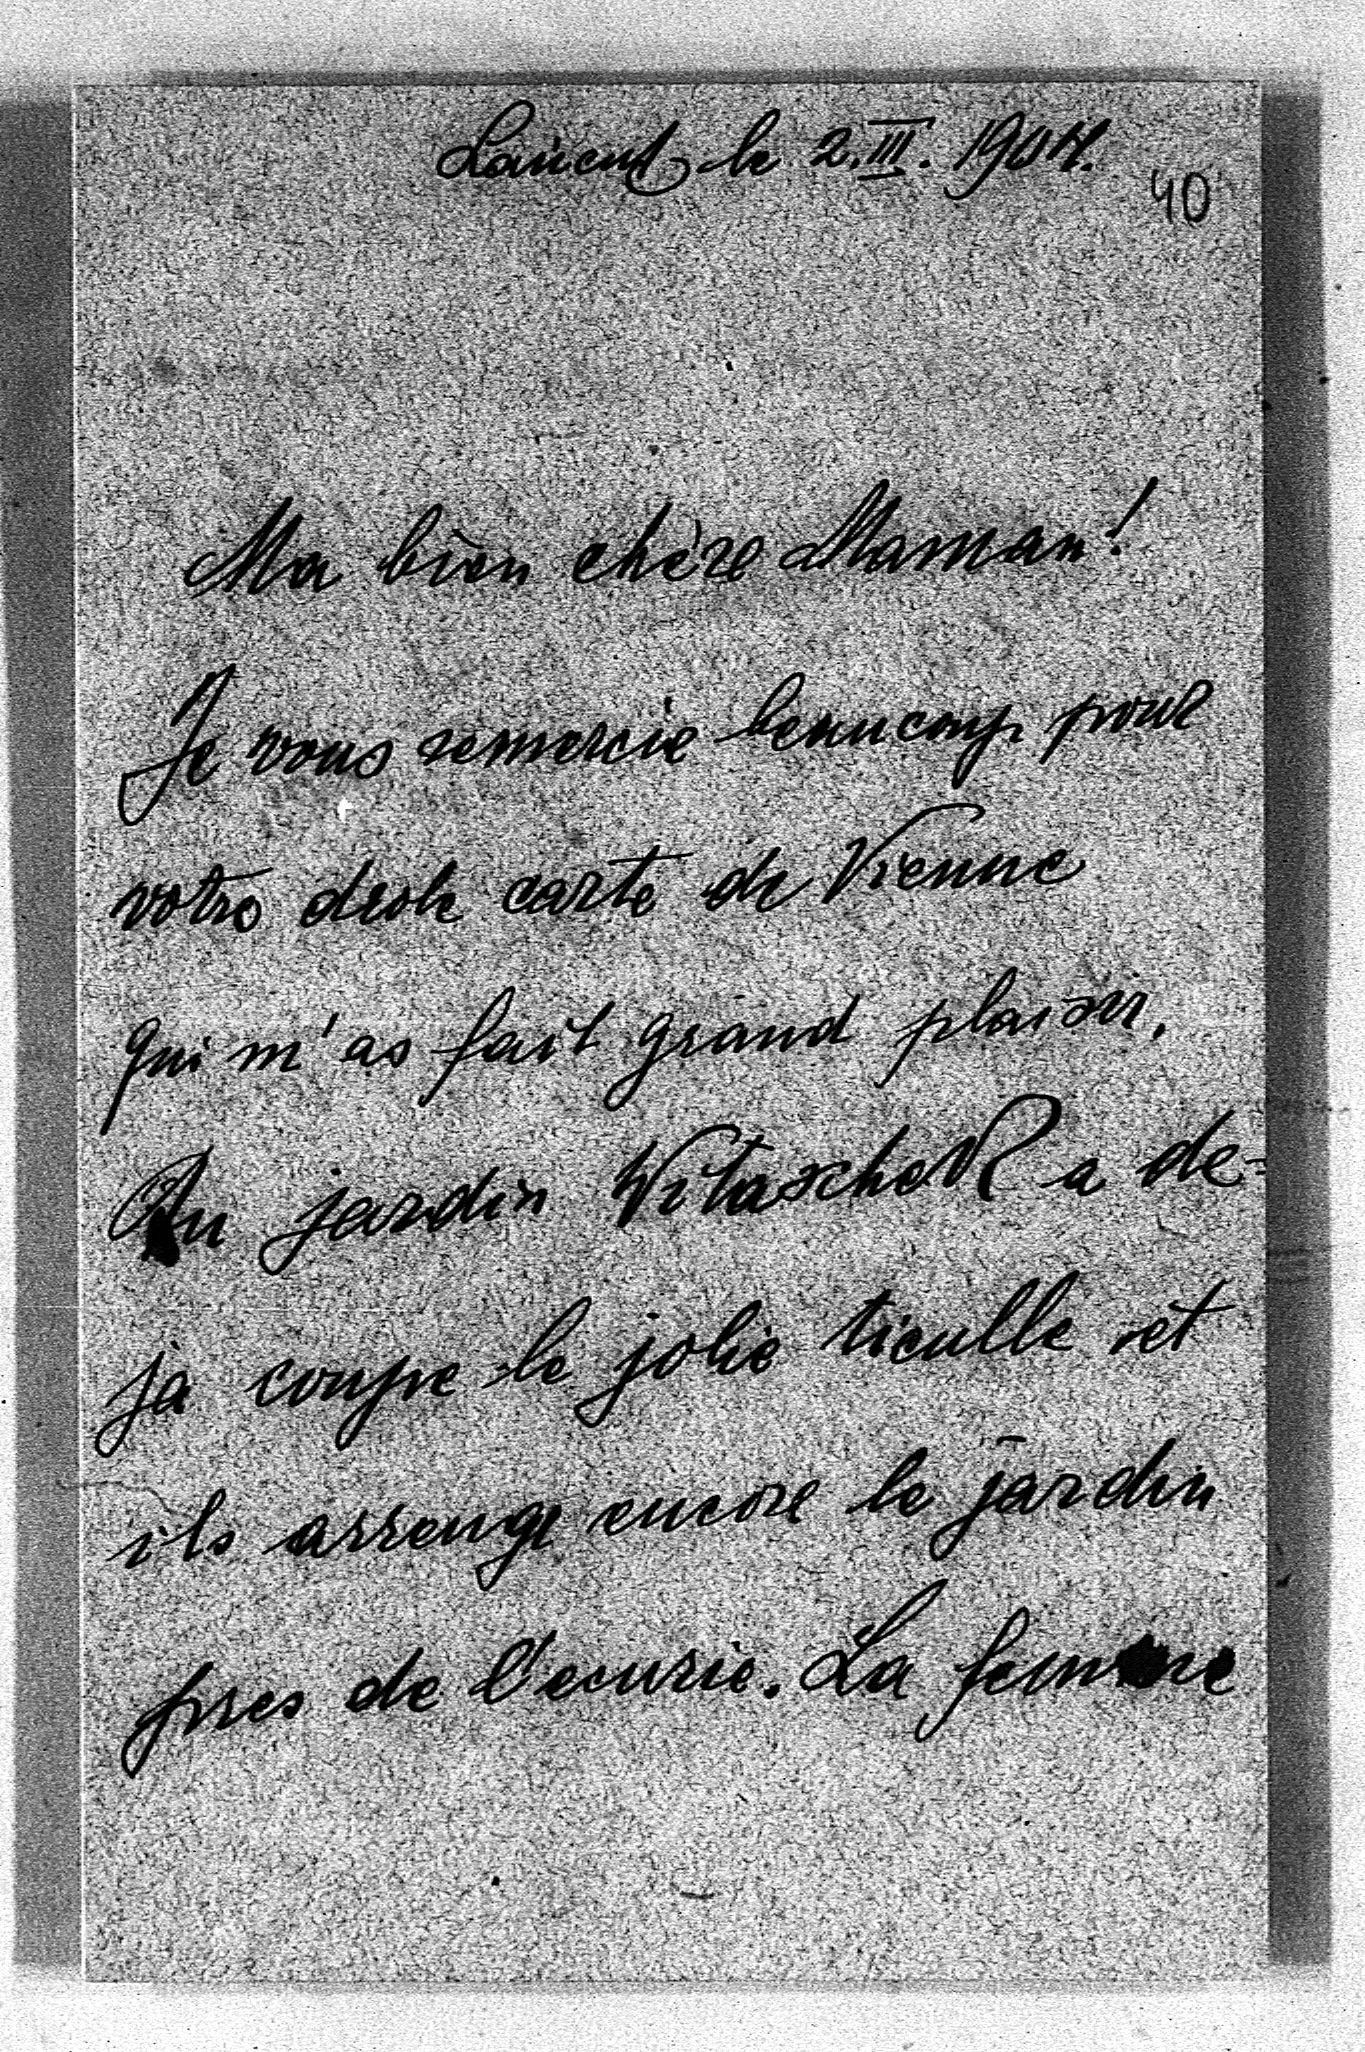 Lańcut le 2.III.1904.
40
Ma bien chère Maman!
Je vous remercie beaucoup pour
votre drole carte de Vienne
qui m'as fait grand plaisir.
Au jardin Witaschek a de-
ja coupe le jolie tieulle et
ils arrenge encore le jardin
pres de l'ecurie. La femme